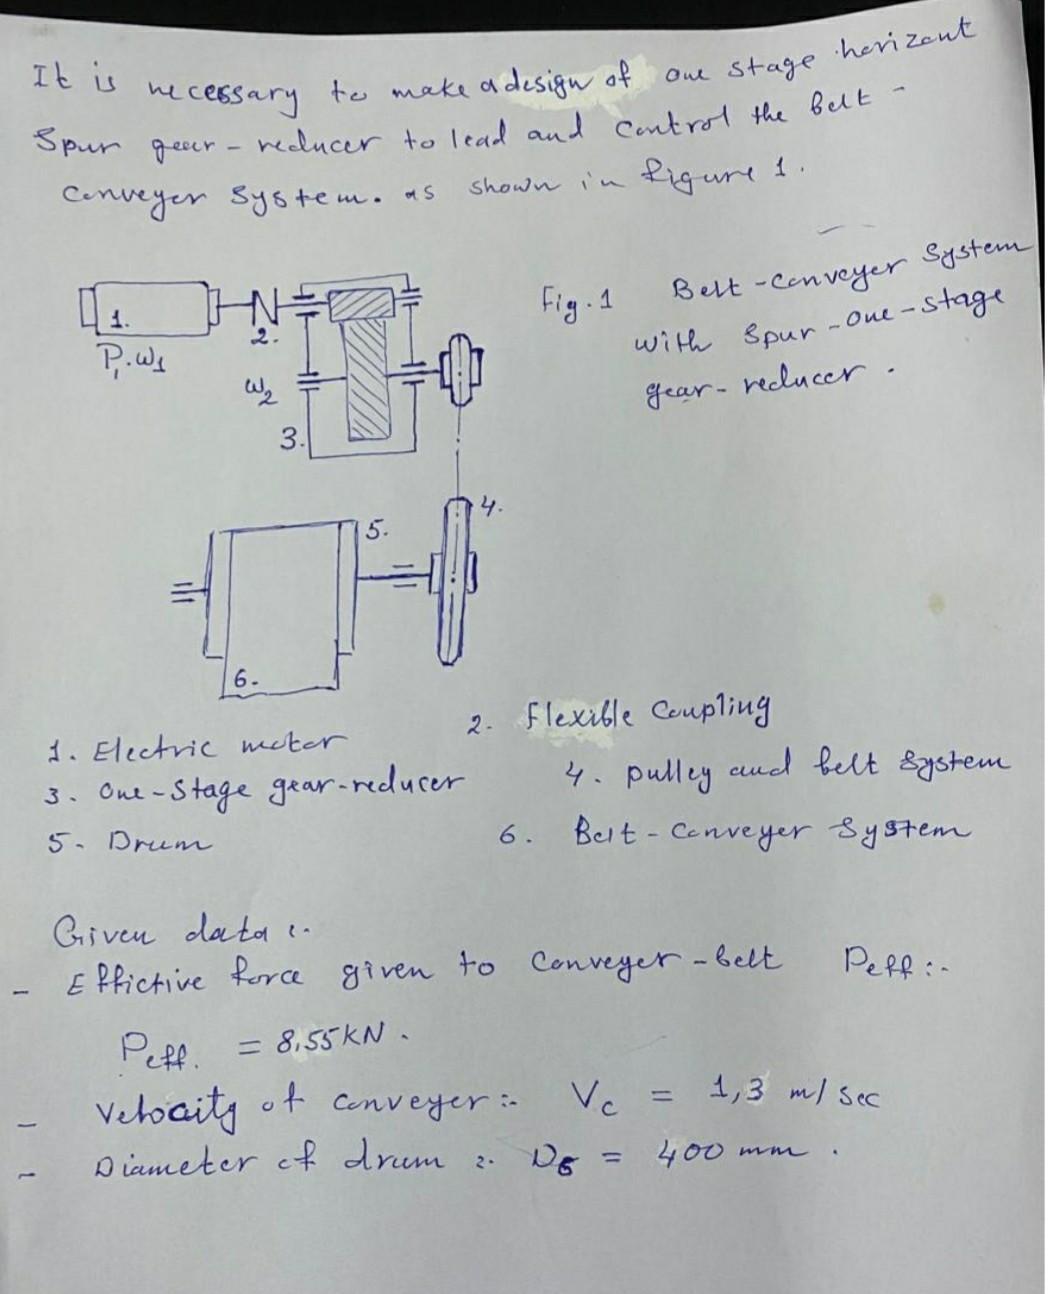 It is necessary to make a design of one stage horizont
Spur gear - reducer to lead and control the belt -
Conveyer System. as shown in figure 1.
Fig. 1 Belt - Conveyer System
with Spur - one - stage
gear - reducer .
1.
2.
P, ω1
ω2
3.
4.
5.
6.
1. Electric motor
2. Flexible Coupling
3. One - Stage gear - reducer
4. pulley and belt System
5. Drum
6. Belt - Conveyer System
Given data :.
- Effictive force given to Conveyer - belt Peff :-
Peff. = 8,55 kN .
- Velocity of conveyer :- Vc = 1,3 m/sec
- Diameter of drum :. D5 = 400 mm .